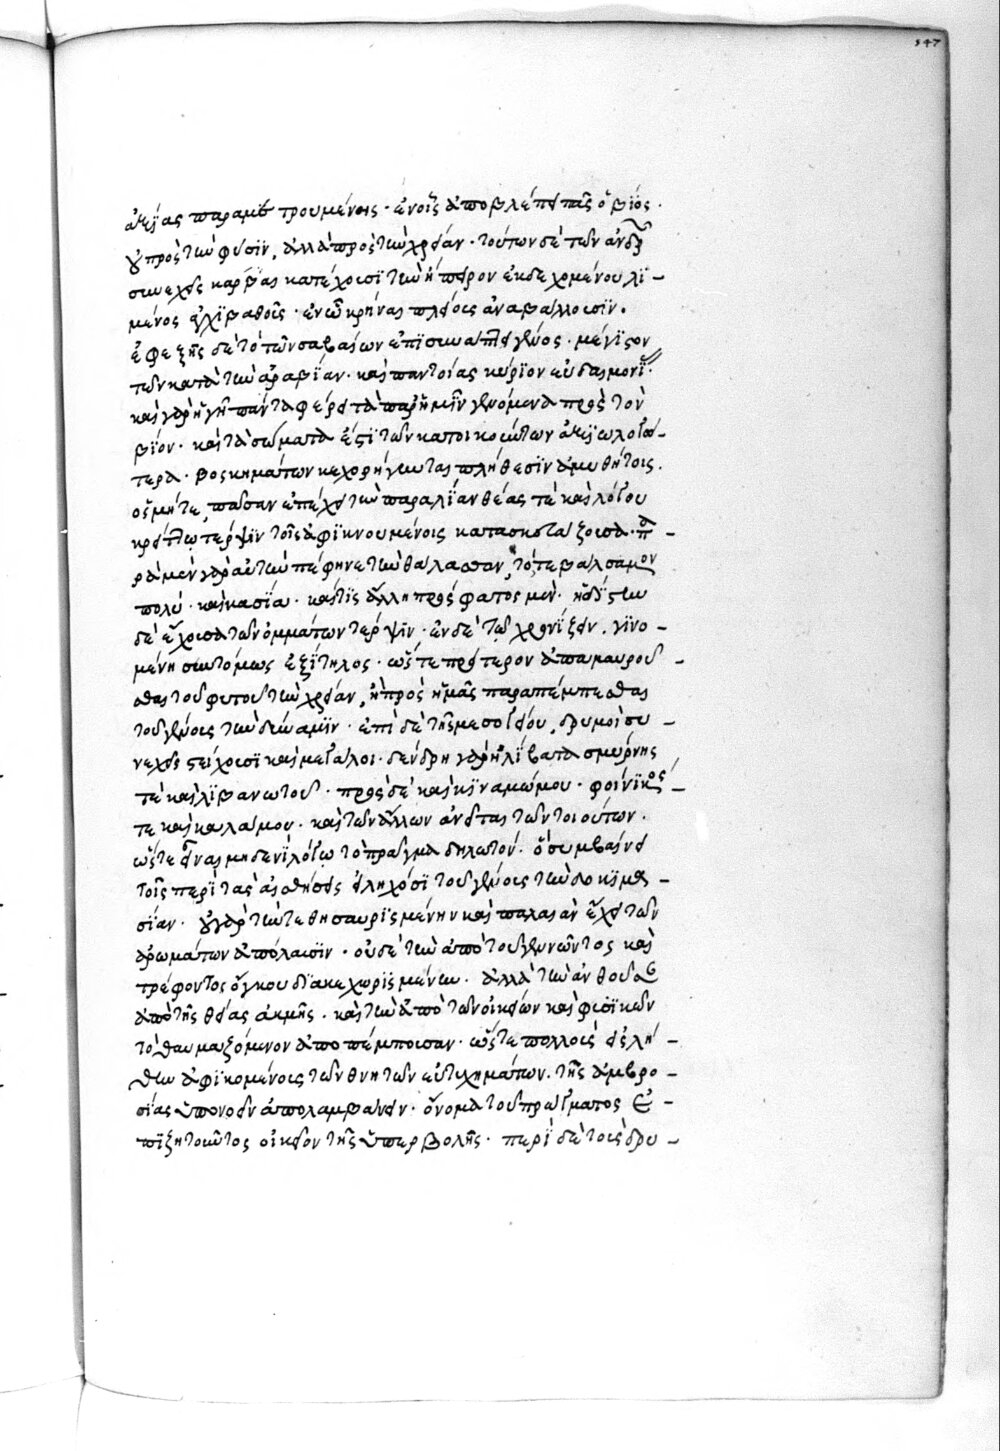 147
ἀκίας παραμετρουμένοις· ἐν οἷς ἀποβλέπει πᾶς ὁ βίος·
οὐ πρὸς τὴν φύσιν, ἀλλὰ πρὸς τὴν χρείαν· τούτων δὲ τῶν ἀνδρῶν
συνεχεῖς κάρβαι κατέχουσι τὴν ἤπειρον ἐκδεχομένου λι-
μένος ἀγχιβαθοῦς· ἐν ᾧ κρήνας πλείους ἀναβάλλουσιν.
ἐφεξῆς δὲ τὸ τῶν σαβαίων ἐπισυνάπτει γένος· μέγιστον
τῶν κατὰ τὴν ἀραβίαν· καὶ παντοίας κύριον εὐδαιμονίας·
καὶ γὰρ ἡ γῆ πάντα φέρει τὰ παρ' ἡμῖν γινόμενα πρὸς τὸν
βίον· καὶ τὰ σώματα ἐστὶ τῶν κατοικούντων ἀξιωλογώ-
τερα· βοσκημάτων κεχορήγηται πλήθεσιν ἀμυθήτοις.
ὀσμή τε, πᾶσαν ἐπέχει τὴν παραλίαν θείας τὲ καὶ λόγου
κρείττω τέρψιν τοῖς ἀφικνουμένοις κατασκευάζουσα· π -
ρὰ μὲν γὰρ αὐτὴν πέφηνε τὴν θάλασσαν, τό τε βάλσαμον
πολύ· καὶ κασία· καί τις ἄλλη πρόσφατος μὲν ἡδίστην
δὲ ἔχουσα τῶν ὀμμάτων τέρψιν· ἐν δὲ τῷ χρονίζειν γινο-
μένη συντόμως ἐξίτηλος· ὥστε πρότερον ἀπαμαυροῦ-
σθαι τοῦ φυτοῦ τὴν χρείαν, ἢ πρὸς ἡμᾶς παραπέμπεσθαι
τοῦ γένους τὴν δύναμιν· ἐπὶ δὲ τῆς μεσογείου, δρυμοὶ συ-
νεχεῖς στείχουσι καὶ μεγάλοι· δένδρη γὰρ ἠλίβατα σμύρνης
τὲ καὶ λιβανωτοῦ· πρὸς δὲ καὶ κιναμώμου· φοίνικος -
τε καὶ καλάμου· καὶ τῶν ἄλλων ἀνεῖται τῶν τοιούτων·
ὥστε εἶναι μηδενὶ λόγῳ τὸ πρᾶγμα δηλωτόν· ὃ συμβαίνει
τοῖς περὶ τὰς αἰσθήσεις εἰληχόσι τοῦ γένους τὴν δοκιμα-
σίαν· οὐ γὰρ τήν τε θησαυρισμένην καὶ παλαιὰν ἔχει τῶν
ἀρωμάτων ἀπόλαυσιν· οὐδὲ τὴν ἀπὸ τοῦ γεννῶντος καὶ
τρέφοντος ὄγκου διακεχωρισμένην· ἀλλὰ τὴν ἀνθοῦσαν
ἀπὸ τῆς θείας ἀκμῆς· καὶ τὴν ἀπὸ τῶν οἰκείων καὶ φυσικῶν
τὸ θαυμαζόμενον ἀποπέμπουσαν· ὥστε πολλοὺς εἰς λή-
θην ἀφικομένους τῶν θνητῶν εὐτυχημάτων· τῆς ἀμβρο-
σίας ὑπόνοιαν ἀπολαμβάνειν· ὄνομα τοῦ πράγματος ἐ-
πιζητοῦντος οἰκεῖον τῆς ὑπερβολῆς· περὶ δὲ τοὺς δρυ-